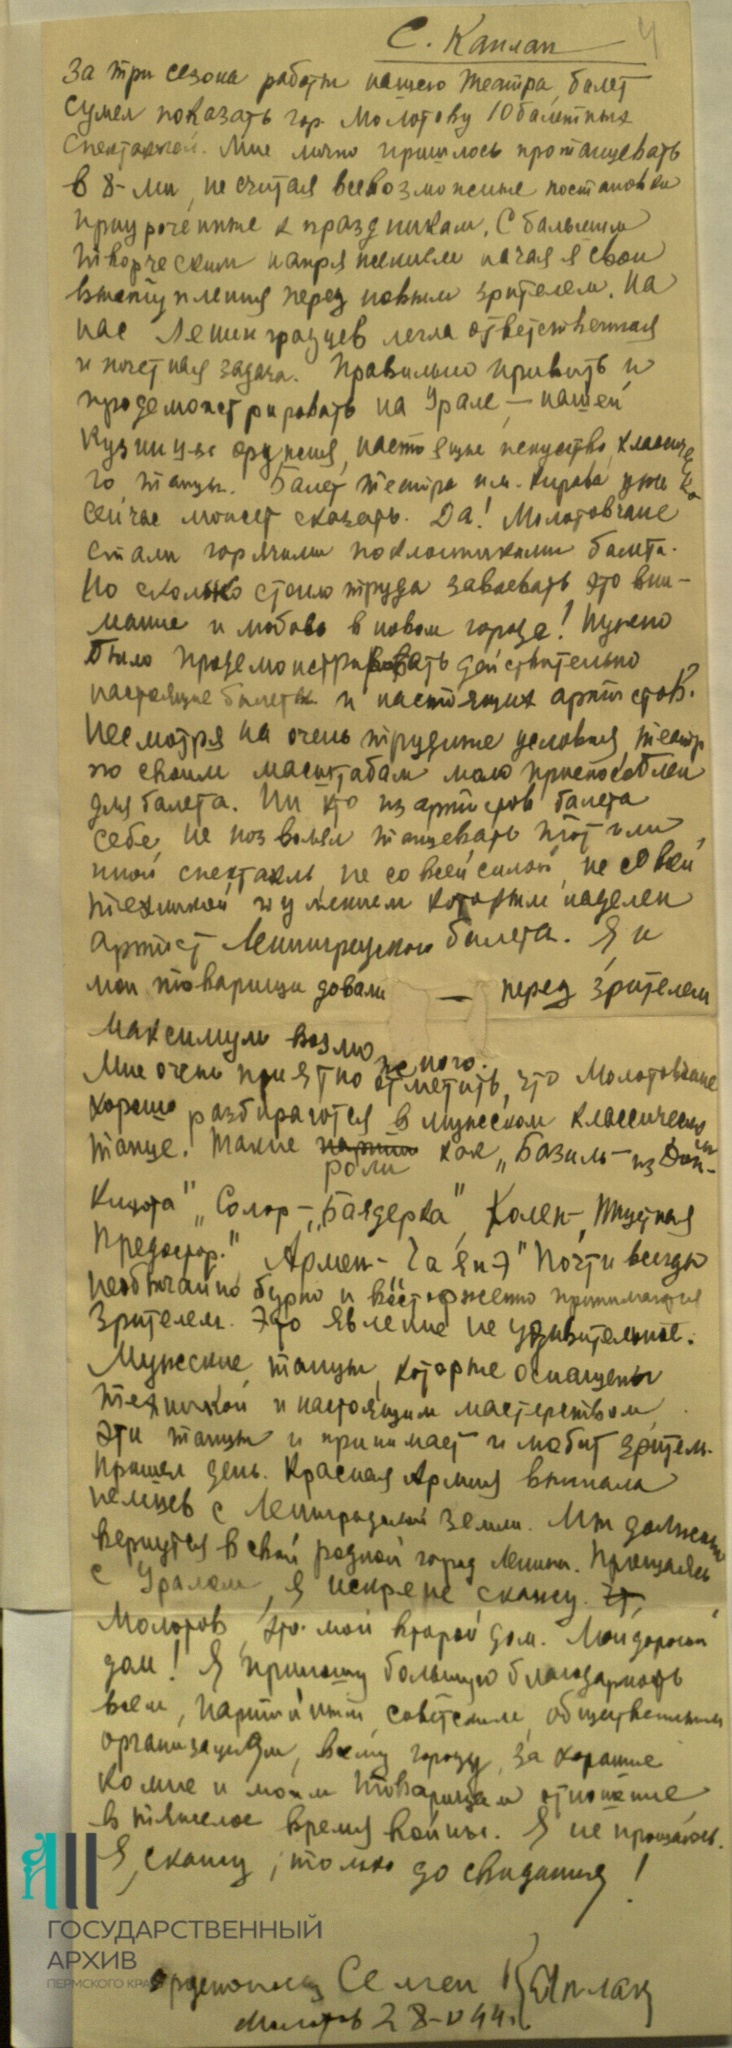 С. Каплан 4
За три сезона работы нашего театра, балет
сумел показать гор. Молотову 10 балетных
спектаклей. Мне лично пришлось протанцевать
в 8-ми, не считая всевозможные постановки
приуроченные к праздникам. С большим
творческим напряжением начал я свои
выступления перед новым зрителем. На
нас Ленинградцев легла ответственная
и почетная задача. Правильно привить и
продемонстрировать на Урале, — нашей
кузницы оружия, настоящие искусство, классическо
го танца. Балет театра им. Кирова уже
сейчас может сказать. Да! Молотовчане
стали горячими поклонниками балета.
Но сколько стоило труда завоевать это вни-
мание и любовь в новом городе! Нужно
было продемонстрировать действительно
настоящие балеты и настоящих артистов.
Несмотря на очень трудные условия, театр
по своим масштабам мало приспособлен
для балета. Ни кто из артистов балета
себе, не позволял танцевать тот или
иной спектакль, не со всей силой, не со всей
техникой и умением которым наделен
артист Ленинградского балета. Я и
мои товарищи давали — перед зрителем
максимум возможного.
Мне очень приятно отметить, что Молотовчане
хорошо разбираются в мужском классическом
танце. Такие роли как „Базиль — из Дон-
Кихота" „Солор — „Баядерка", Колен —, Тщетная
Предостор." Армен — Гаянэ" Почти всегда
необычайно бурно и восторженно принимаются
зрителем. Это явление не удивительное.
Мужские танцы, которые оснащены
техникой и настоящим мастерством
эти танцы и принимает и любит зритель.
Пришел день. Красная Армия выгнала
немцев с Ленинградской земли. Мы должны
вернуться в свой родной город Ленина. Прощаясь
с Уралом, я искренне скажу.
Молотов, это мой второй дом. Мой дорогой
дом! Я приношу большую благодарность
всем, партийным, советским, общественным
организациям, всему городу, за хорошие
ко мне и моим товарищам отношение
в тяжелое время войны. Я не прощаюсь.
Я, скажу, только до свидания!
Орденоносец Семен Каплан
Молотов 28-V 44г.
ГОСУДАРСТВЕННЫЙ
АРХИВ
ПЕРМСКОГО КРАЯ